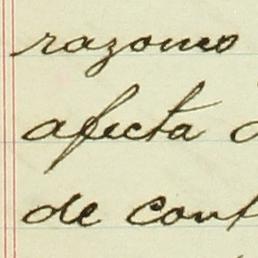 razones
afecta
de conf